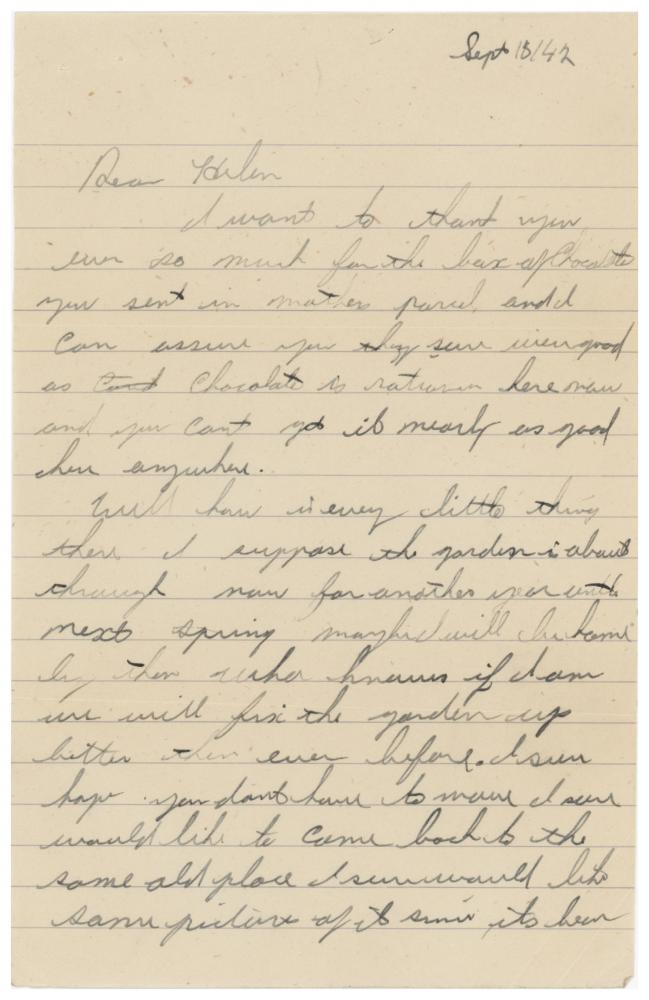 Sept 15/42
Dear Helen
I want to thank you
ever so much for the box of Chocolate
you sent in mothers parcel, and I
can assure you they sure were good
as Chocolate is rationen here now
and you cant get it nearly as good
here anywhere.
Well how is every little thing
there I suppose the garden is about
through now for another year until
next spring maybe I will be home
by then who knows if I am
we will fix the garden up
better then ever before. I sure
hope you dont have to move I sure
would like to come back to the
same old place I sure would like
some picture of it since its been